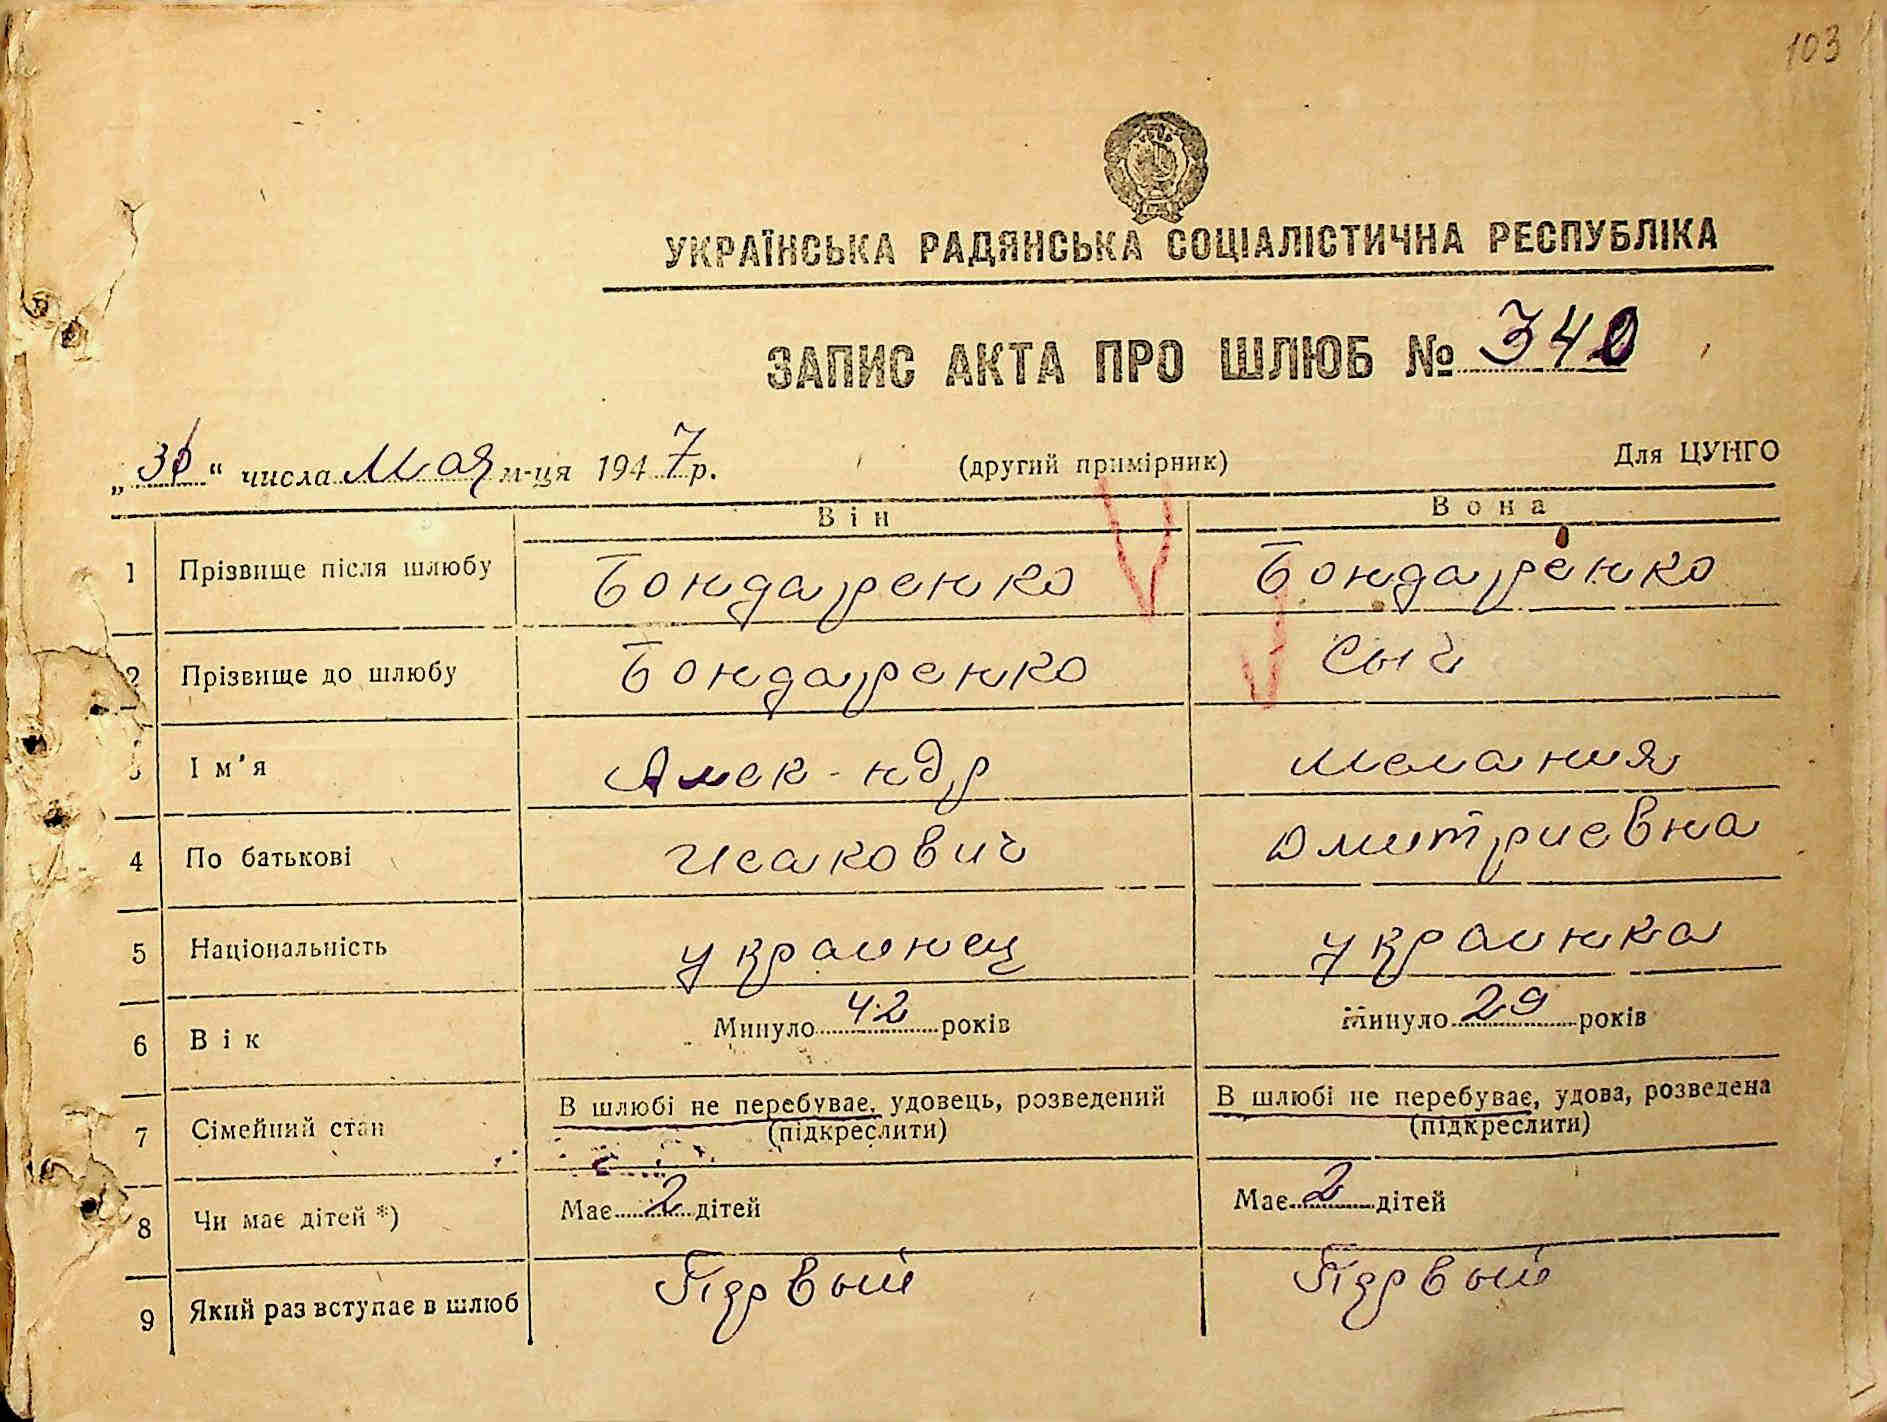 103
УКРАЇНСЬКА РАДЯНСЬКА СОЦІАЛІСТИЧНА РЕСПУБЛІКА
ЗАПИС АКТА ПРО ШЛЮБ № 340
„31“ числа Мая м-ця 1947 р. (другий примірник) Для ЦУНГО
Він Вона
1 Прізвище після шлюбу Бондаренко Бондаренко
2 Прізвище до шлюбу Бондаренко Сыч
3 Ім'я Алек-ндр Мелания
4 По батькові Исакович Дмитриевна
5 Національність украинец украинка
6 Вік Минуло 42 років Минуло 29 років
7 Сімейний стан В шлюбі не перебуває, удовець, розведений В шлюбі не перебуває, удова, розведена
(підкреслити) (підкреслити)
8 Чи має дітей *) Має 2 дітей Має 2 дітей
9 Який раз вступає в шлюб Первый Первый